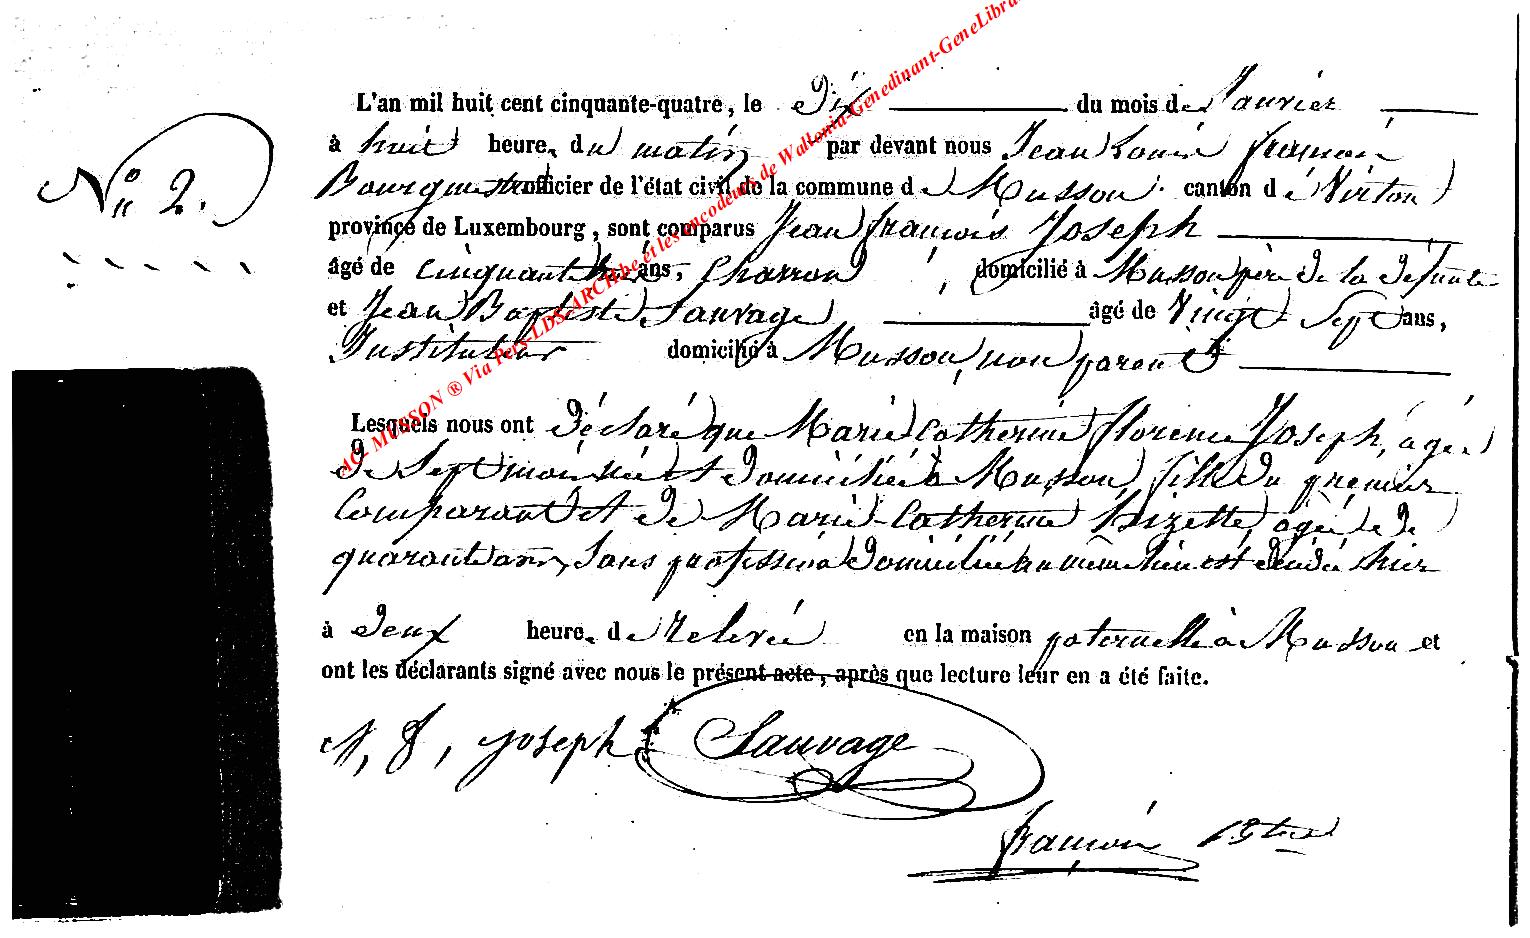 L'an mil huit cent cinquante-quatre, le Dix du mois de Janvier
N° 2.
à huit heure, du matin par devant nous Jean Louis françois
Bourguemestre officier de l'état civil de la commune de Musson canton de Virton
province de Luxembourg, sont comparus Jean françois Joseph
âgé de Cinquante ans, Charron, domicilié à Musson père de la défunte
et Jean Baptiste Sauvage âgé de Vingt Sept ans,
Instituteur domicilié à Musson, non parent
Lesquels nous ont Déclaré que Marie Catherine florence Joseph, âgée
de Sept mois née et domiciliée à Musson fille du premier
Comparant et de Marie-Catherine Hizette, âgée de
quarante ans, Sans profession domiciliée au même lieu est décédée hier
à deux heure, de relevée en la maison paternelle à Musson et
ont les déclarants signé avec nous le présent acte, après que lecture leur en a été faite.
Joseph Sauvage
françois Bgtre
AC MUSSON ® Via Pers-LDS-ARCH.be et les encodeurs de Wallonia-Genedinant-GeneLibra